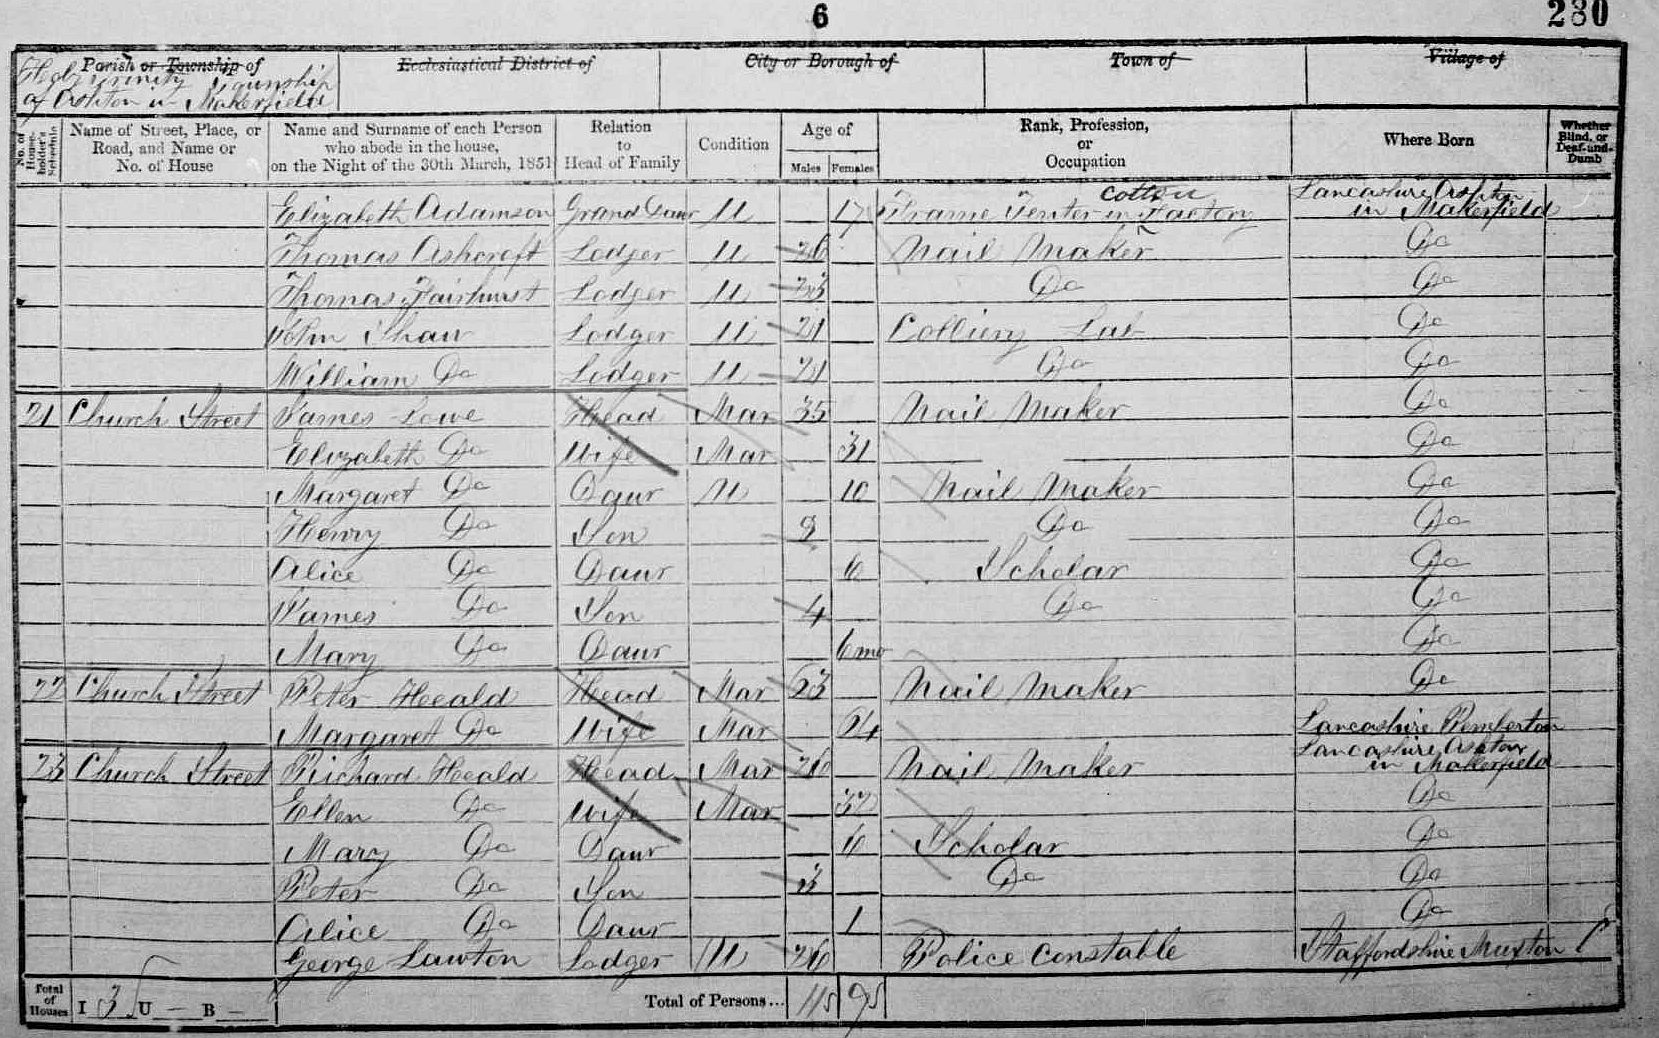 6
280
Parish or Township of Ecclesiastical District of City or Borough of Town of Village of
Holy Trinity Township
of Ashton in Makerfield
No. of House-holder's Schedule
Name of Street, Place, or Road, and Name or No. of House
Name and Surname of each Person who abode in the house, on the Night of the 30th March, 1851
Relation to Head of Family
Condition
Age of
Males Females
Rank, Profession, or Occupation
Where Born
Whether Blind, or Deaf-and-Dumb
Elizabeth Adamson Grand Daur U 17 Frame Tenter in cotton Factory Lancashire Ashton in Makerfield
Thomas Ashcroft Lodger U 26 Nail Maker Do
Thomas Fairhurst Lodger U 23 Do Do
John Shaw Lodger U 21 Colliery Lab Do
William Do Lodger U 21 Do Do
21 Church Street James Lowe Head Mar 35 Nail Maker Do
Elizabeth Do Wife Mar 31 Do
Margaret Do Daur U 10 Nail Maker Do
Henry Do Son 9 Do Do
Alice Do Daur 6 Scholar Do
James Do Son 4 Do Do
Mary Do Daur 6 mo Do
22 Church Street Peter Heald Head Mar 63 Nail Maker Do
Margaret Do Wife Mar 64 Lancashire Pemberton
23 Church Street Richard Heald Head Mar 26 Nail Maker Lancashire Ashton in Makerfield
Ellen Do Wife Mar 32 Do
Mary Do Daur 6 Scholar Do
Peter Do Son 3 Do Do
Alice Do Daur 1 Do
George Lawton Lodger U 26 Police Constable Staffordshire
Total of Houses I 3 U — B — Total of Persons... 11 9